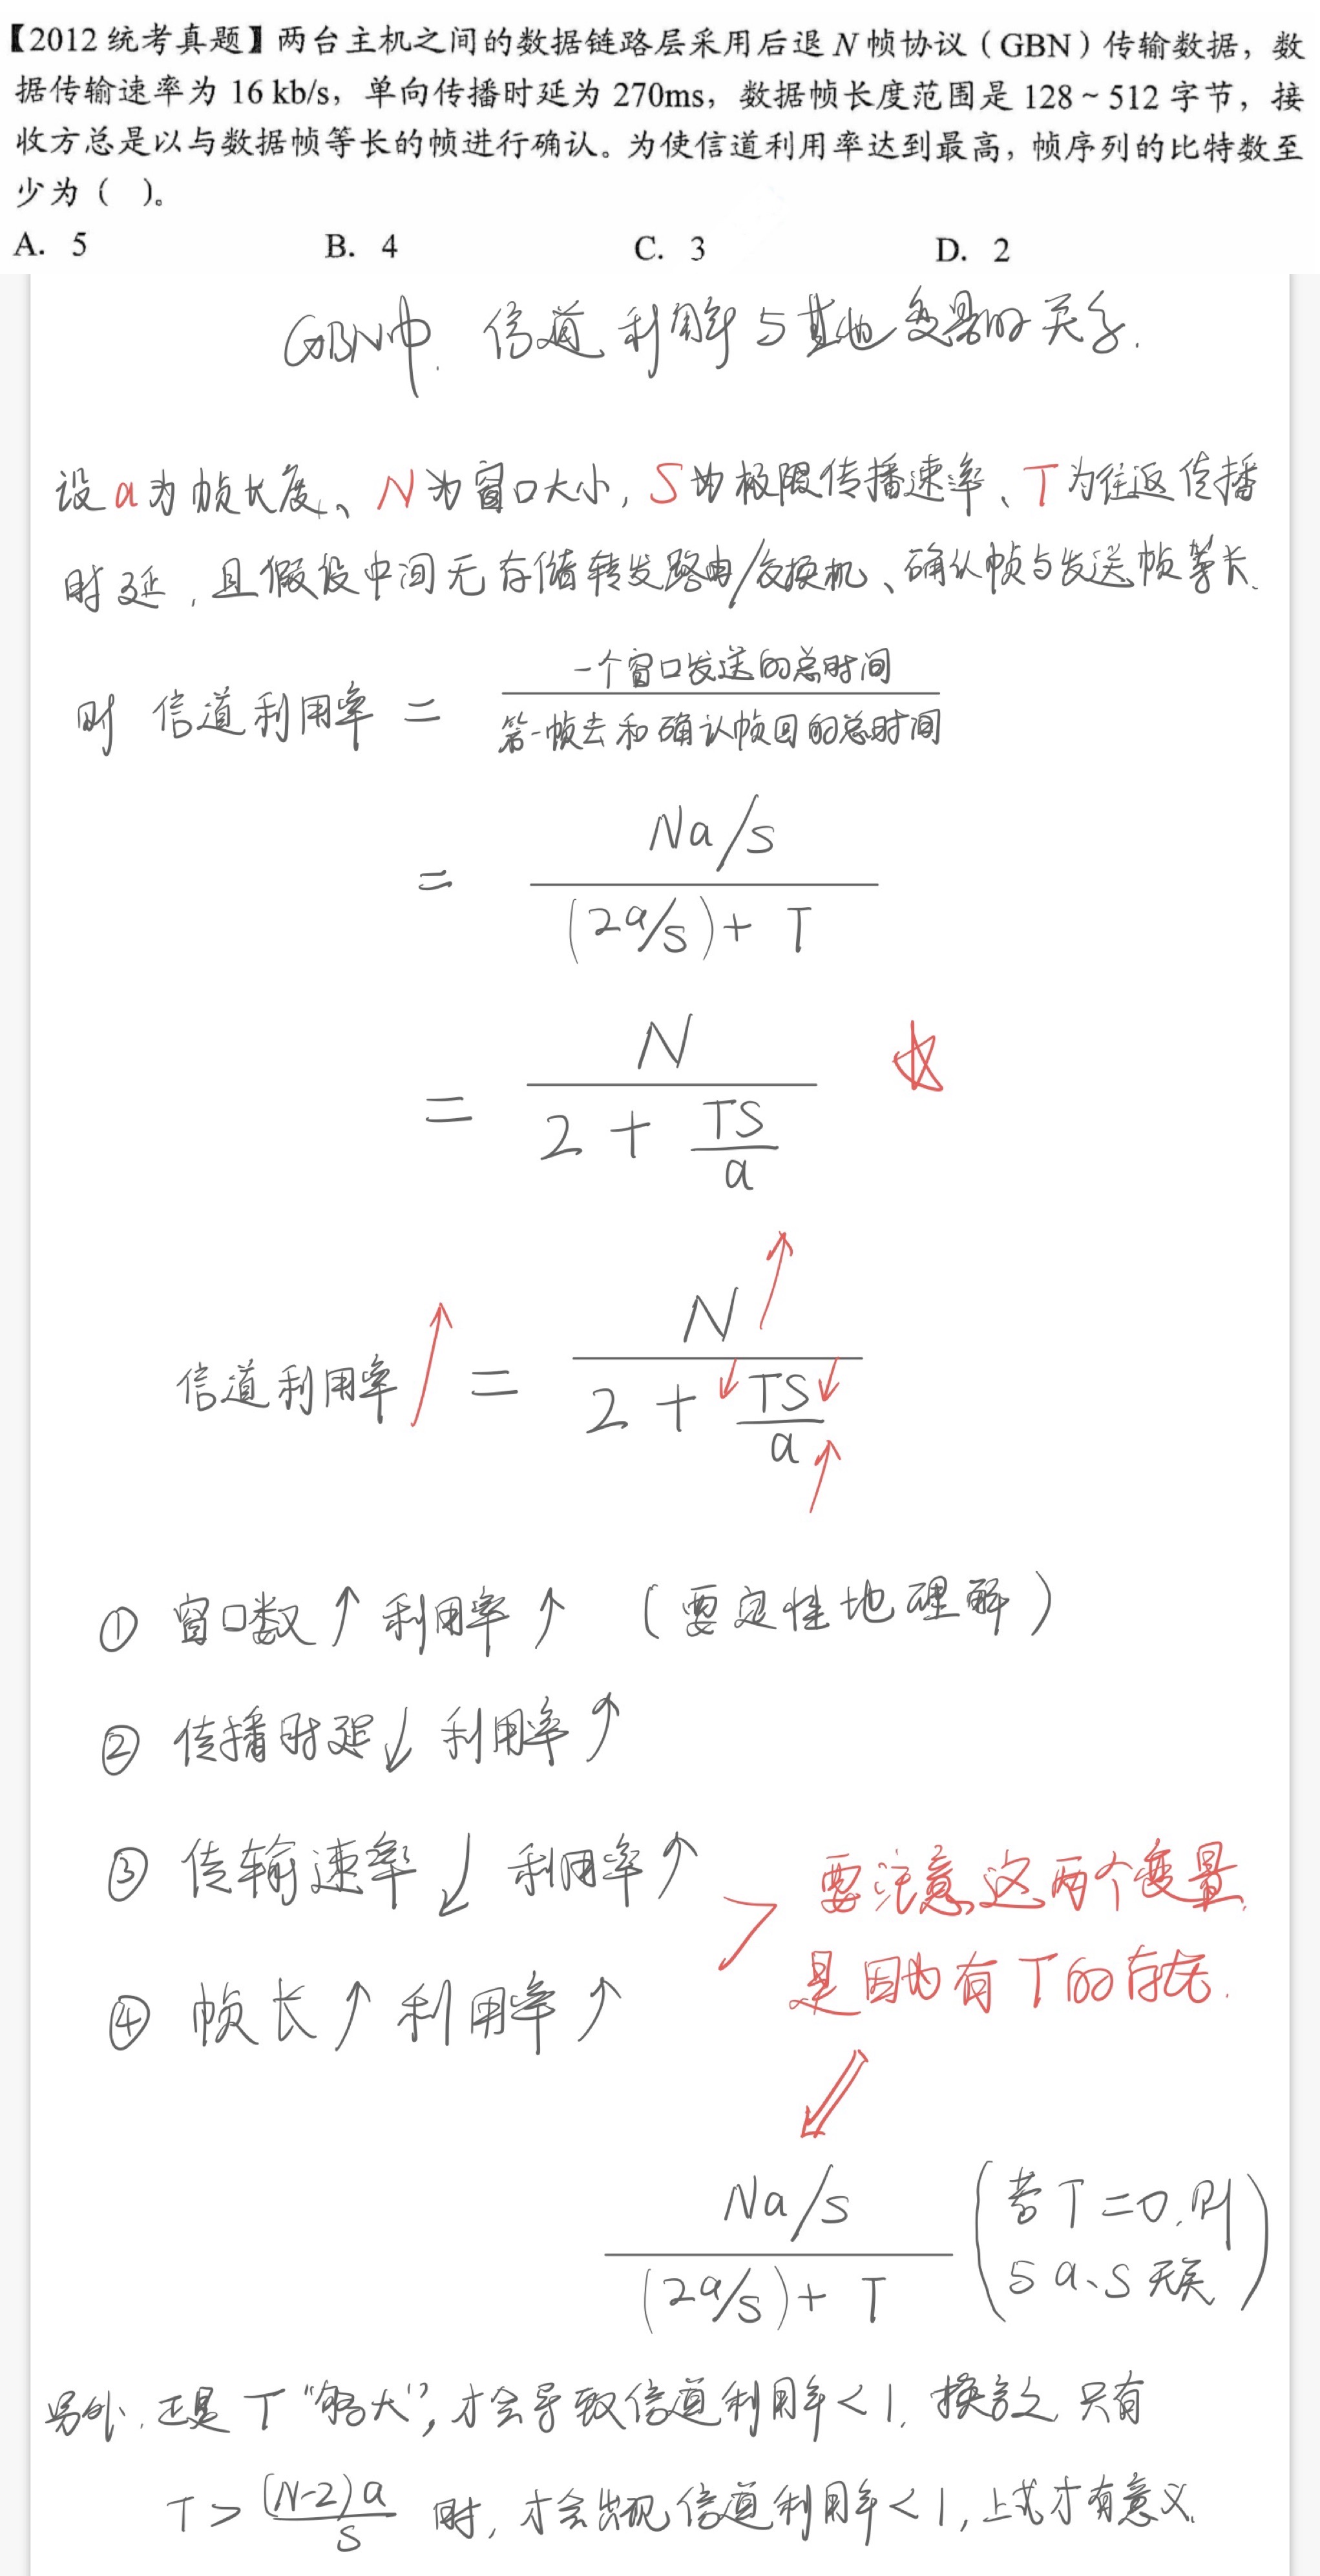 【2012 统考真题】两台主机之间的数据链路层采用后退 N 帧协议（GBN）传输数据，数
据传输速率为 16 kb/s，单向传播时延为 270ms，数据帧长度范围是 128～512 字节，接
收方总是以与数据帧等长的帧进行确认。为使信道利用率达到最高，帧序列的比特数至
少为（ ）。
A. 5 B. 4 C. 3 D. 2
GBN中．信道利用率与其他变量的关系．
设 a 为帧长度、N 为窗口大小，S 为极限传播速率、T 为往返传播
时延，且假设中间无存储转发路由/交换机、确认帧与发送帧等长．
则 信道利用率 = 一个窗口发送的总时间
第一帧去和确认帧回的总时间
= Na/s
(2a/s)+ T
= N
2 + TS
a
信道利用率↑ = N↑
2 + ↓TS↓
a↑
① 窗口数↑ 利用率↑ （要定性地理解）
② 传播时延↓ 利用率↑
③ 传输速率↓ 利用率↑
要注意这两个变量，
是因为有T的存在．
④ 帧长↑ 利用率↑
Na/s
(2a/s)+ T
（若T=0，则
与a、S无关）
另外，正是 T“够大”，才会导致信道利用率<1，换言之 只有
T > (N-2)a
S
时，才会出现信道利用率<1，上式才有意义．